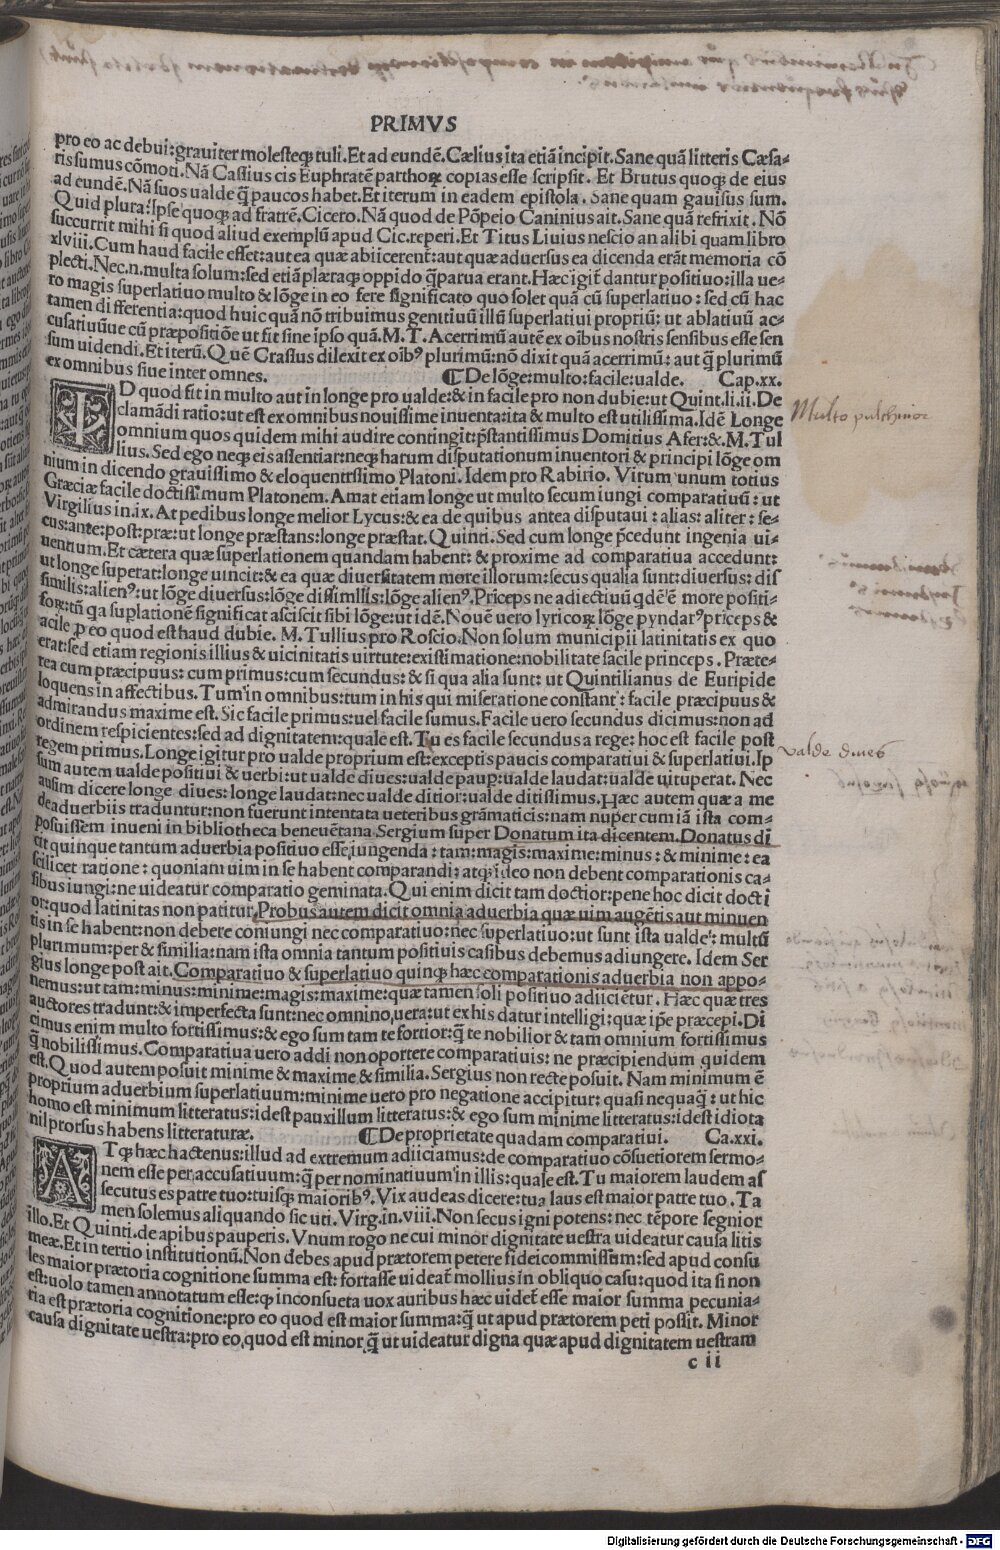 PRIMVS
pro eo ac debui:grauiter molesteq; tuli.Et ad eundē.Cælius ita etiā incipit.Sane quā litteris Cæsa-
ris sumus cōmoti.Nā Cassius cis Euphratē parthoꝝ copias esse scripsit. Et Brutus quoq; de eius
ad eundē.Nā suos ualde q̄ paucos habet.Et iterum in eadem epistola. Sane quam gauisus sum.
Quid plura:Ipse quoq; ad fratrē.Cicero.Nā quod de Pōpeio Caninius ait.Sane quā refrixit.Nō
succurrit mihi si quod aliud exemplū apud Cic.reperi.Et Titus Liuius nescio an alibi quam libro
xlviii.Cum haud facile esset:aut ea quæ abiicerent:aut quæ aduersus ea dicenda erāt memoria cō
plecti.Nec.n.multa solum:sed etiā plæraq; oppido q̄ parua erant.Hæc igit̄ dantur positiuo:illa ue-
ro magis superlatiuo multo & lōge in eo fere significato quo solet quā cū superlatiuo:sed cū hac
tamen differentia:quod huic quā nō tribuimus genitiuū illū superlatiui propriū: ut ablatiuū ac-
cusatiuūue cū præpositiōe ut fit sine ipso quā.M.T.Acerrimū autē ex oībus nostris sensibus esse sen
sum uidendi.Et iterū.Quē Crassus dilexit ex oīb⁹ plurimū:nō dixit quā acerrimū: aut q̄ plurimū
ex omnibus siue inter omnes. ¶De lōge:multo:facile:ualde. Cap.xx.
ID quod fit in multo aut in longe pro ualde:& in facile pro non dubie:ut Quint.li.ii.De
clamādi ratio:ut est ex omnibus nouissime inuenta:ita & multo est utilissima.Idē Longe
omnium quos quidem mihi audire contingit:p̄stantissimus Domitius Afer:&.M.Tul
lius.Sed ego neq; eis assentiar:neq; harum disputationum inuentori & principi lōge om
nium in dicendo grauissimo & eloquentissimo Platoni.Idem pro Rabirio. Virum unum totius
Græciæ facile doctissimum Platonem. Amat etiam longe ut multo secum iungi comparatiuū: ut
Virgilius in.ix.At pedibus longe melior Lycus:& ea de quibus antea disputaui: alias: aliter: se-
cus:ante:post:præ:ut longe præstans:longe præstat.Quinti.Sed cum longe p̄cedunt ingenia ui-
uentium.Et cætera quæ superlationem quandam habent: & proxime ad comparatiua accedunt:
ut longe superat:longe uincit:& ea quæ diuersitatem more illorum:secus qualia sunt:diuersus: dis
similis:alien⁹:ut lōge diuersus:lōge dissimilis:lōge alien⁹.Prīceps ne adiectiuū qdē ē more positi-
foꝝ:tn̄ qa suplationē significat asciscit sibi lōge:ut idē.Nouē uero lyricoꝝ lōge pyndar⁹ prīceps &
acile p̲ eo quod est haud dubie. M.Tullius pro Roscio.Non solum municipii latinitatis ex quo
erat:sed etiam regionis illius & uicinitatis uirtute:existimatione:nobilitate facile princeps. Præte-
rea cum præcipuus: cum primus:cum secundus:& si qua alia sunt: ut Quintilianus de Euripide
loquens in affectibus. Tum in omnibus:tum in his qui miseratione constant: facile præcipuus &
admirandus maxime est. Sic facile primus:uel facile sumus.Facile uero secundus dicimus:non ad
ordinem respicientes:sed ad dignitatem:quale est.Tu es facile secundus a rege: hoc est facile post
regem primus.Longe igitur pro ualde proprium est:exceptis paucis comparatiui & superlatiui.Ip
sum autem ualde positiui & uerbi:ut ualde diues:ualde paup:ualde laudat:ualde uituperat. Nec
ausim dicere longe diues: longe laudat:nec ualde ditior:ualde ditissimus.Hæc autem quæ a me
de aduerbiis traduntur:non fuerunt intentata ueteribus grāmaticis:nam nuper cum iā ista com-
posuissem inueni in bibliotheca beneuētana Sergium super Donatum ita dicentem.Donatus di
cit quinque tantum aduerbia positiuo esse iungenda:tam:magis:maxime:minus: & minime: ea
scilicet ratione: quoniam uim in se habent comparandi: atq; ideo non debent comparationis ca-
sibus iungi:ne uideatur comparatio geminata. Qui enim dicit tam doctior:pene hoc dicit docti
or:quod latinitas non patitur.Probus autem dicit omnia aduerbia quæ uim augētis aut minuen
tis in se habent:non debere coniungi nec comparatiuo:nec superlatiuo:ut sunt ista ualde: multū
plurimum:per & similia:nam ista omnia tantum positiuis casibus debemus adiungere. Idem Ser
gius longe post ait.Comparatiuo & superlatiuo quinq; hæc comparationis aduerbia non appo-
nemus:ut tam:minus:minime:magis:maxime:quæ tamen soli positiuo adiiciētur. Hæc quæ tres
auctores tradunt:& imperfecta sunt:nec omnino uera:ut ex his datur intelligi:quæ ip̄e præcepi.Di
cimus enim multo fortissimus:& ego sum tam te fortior:q̄ te nobilior & tam omnium fortissimus
q̄ nobilissimus.Comparatiua uero addi non oportere comparatiuis: ne præcipiendum quidem
est.Quod autem posuit minime & maxime & similia. Sergius non recte posuit. Nam minimum ē
proprium aduerbium superlatiuum:minime uero pro negatione accipitur: quasi nequaq̄: ut hic
homo est minimum litteratus:idest pauxillum litteratus:& ego sum minime litteratus:idest idiota
nil prorsus habens litteraturæ. ¶De proprietate quadam comparatiui. Ca.xxi.
ATq; hæc hactenus:illud ad extremum adiiciamus:de comparatiuo cōsuetiorem sermo-
nem esse per accusatiuum:q̄ per nominatiuum in illis:quale est.Tu maiorem laudem as
secutus es patre tuo:tuisq; maiorib⁹.Vix audeas dicere:tua laus est maior patre tuo.Ta
men solemus aliquando sic uti.Virg.in.viii.Non secus igni potens: nec tēpore segnior
illo.Et Quinti.de apibus pauperis. Vnum rogo ne cui minor dignitate uestra uideatur causa litis
meæ.Et in tertio institutionū.Non debes apud prætorem petere fideicommissum:sed apud consu
les maior prætoria cognitione summa est: fortasse uideat̄ mollius in obliquo casu:quod ita si non
est:uolo tamen annotatum esse:q; inconsueta uox auribus hæc uidet̄ esse maior summa pecunia-
ria est prætoria cognitione:pro eo quod est maior summa:q̄ ut apud prætorem peti possit. Minor
causa dignitate uestra:pro eo,quod est minor q̄ ut uideatur digna quæ apud dignitatem uestram
c ii
Multo pulchrior
valde dives
Digitalisierung gefördert durch die Deutsche Forschungsgemeinschaft - DFG